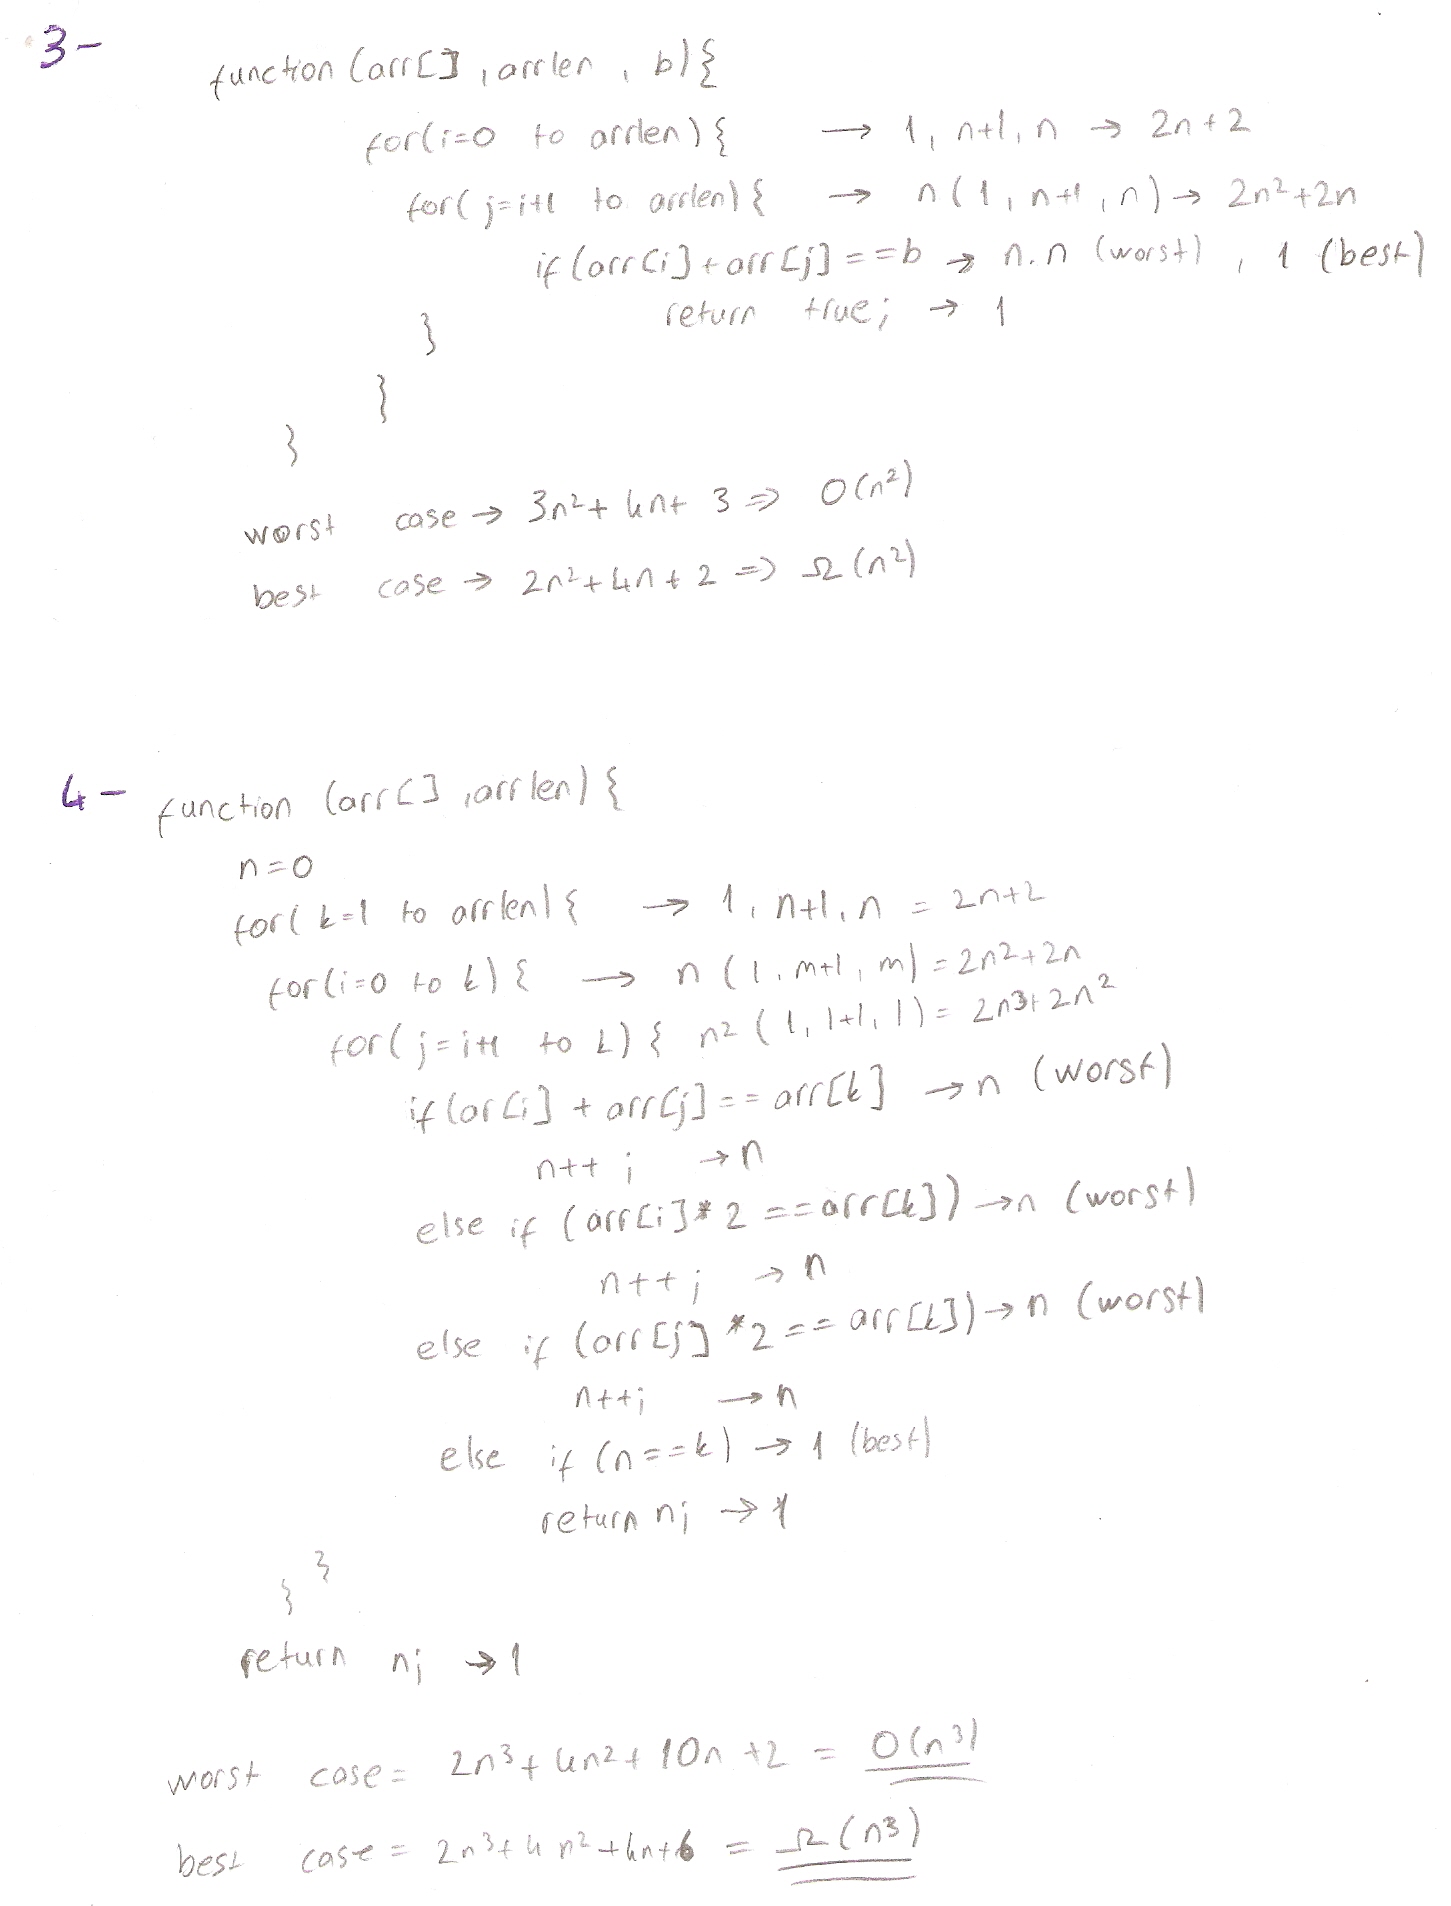 3-
function (arr[], arrlen, b){
for(i=0 to arrlen){ → 1, n+1, n → 2n+2
for(j=i+1 to arrlen){ → n(1, n+1, n) → 2n²+2n
if(arr[i]+arr[j]==b → n.n (worst), 1 (best)
return true; → 1
}
}
}
worst case → 3n²+4n+3 => O(n²)
best case → 2n²+4n+2 => Ω(n²)
4- function (arr[], arrlen){
n=0
for(k=1 to arrlen){ → 1, n+1, n = 2n+2
for(i=0 to k){ → n(1, m+1, m) = 2n²+2n
for(j=i+1 to k){ n²(1, l+1, l) = 2n³+2n²
if(ar[i] + arr[j]==arr[k] → n (worst)
n++; → n
else if (arr[i]*2 ==arr[k]) → n (worst)
n++; → n
else if (arr[j]*2 == arr[k]) → n (worst)
n++; → n
else if (n==k) → 1 (best)
return n; → 1
}
}
return n; → 1
worst case = 2n³+4n²+10n+2 = O(n³)
best case = 2n³+4n²+4n+6 = Ω(n³)